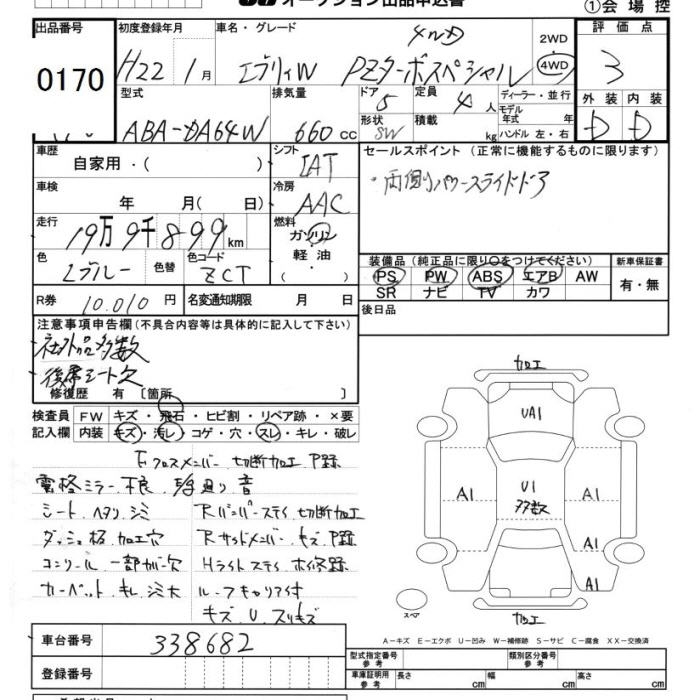 オークション出品申込書
①会場控
出品番号 初度登録年月 車名・グレード 2WD 評価点
0170 H22年1月 エブリィW PZターボスペシャル 4WD 4WD 3
型式 排気量 ドア 5 定員 4人 ディーラー・並行 外装 内装
ABA-DA64W 660cc 形状 SW 積載 kg モデル年式 年式 ハンドル 左・右 D D
車歴 自家用・( ) シフト IAT セールスポイント (正常に機能するものに限ります)
車検 年 月( 日) 冷房 AAC ・両側パワースライドドア
走行 19万9千899km 燃料 ガソリン・軽油・( )
色 Lブルー 色替 色コード ZCT
装備品(純正品に限り○をつけてください) 新車保証書
PS PW ABS エアB AW 有・無
SR ナビ TV カワ
R券 10.010円 名変通知期限 月 日 後日品
注意事項申告欄(不具合内容等は具体的に記入して下さい)
社外品多数
後席シート欠
修復歴 有 〔箇所 〕
検査員 FW キズ・飛石・ヒビ割・リペア跡・×要
記入欄 内装 キズ・汚レ・コゲ・穴・スレ・キレ・破レ
Fクロスメンバー 切断加工 P跡
電格ミラー不良
音
シート ヘタリ シミ Rバンパーステイ 切断加工
ダッシュ 加工穴 Rサイドメンバー キズ P跡
コンソール 一部カバー欠 Hライトステイ
カーペット キレ シミ大 ルーフキャリア付
キズ U スリキズ
加工
UA1
U1
多数
A1 A1
A1
A1
スペア
加工
A-キズ E-エクボ U-凹み W-補修跡 S-サビ C-腐食 XX-交換済
車台番号 338682
登録番号
型式指定番号 参考 類別区分番号 参考
車庫証明用 参考 長さ cm 幅 cm 高さ cm